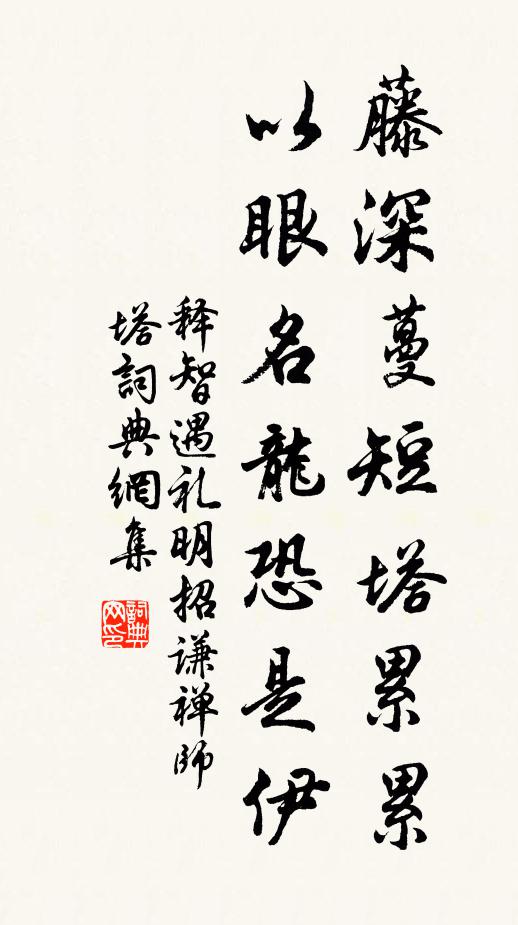 藤深蔓短塔累累
以眼名龍恐是伊
释智遇礼明招谦禅師
塔詞典網集
詞典网印